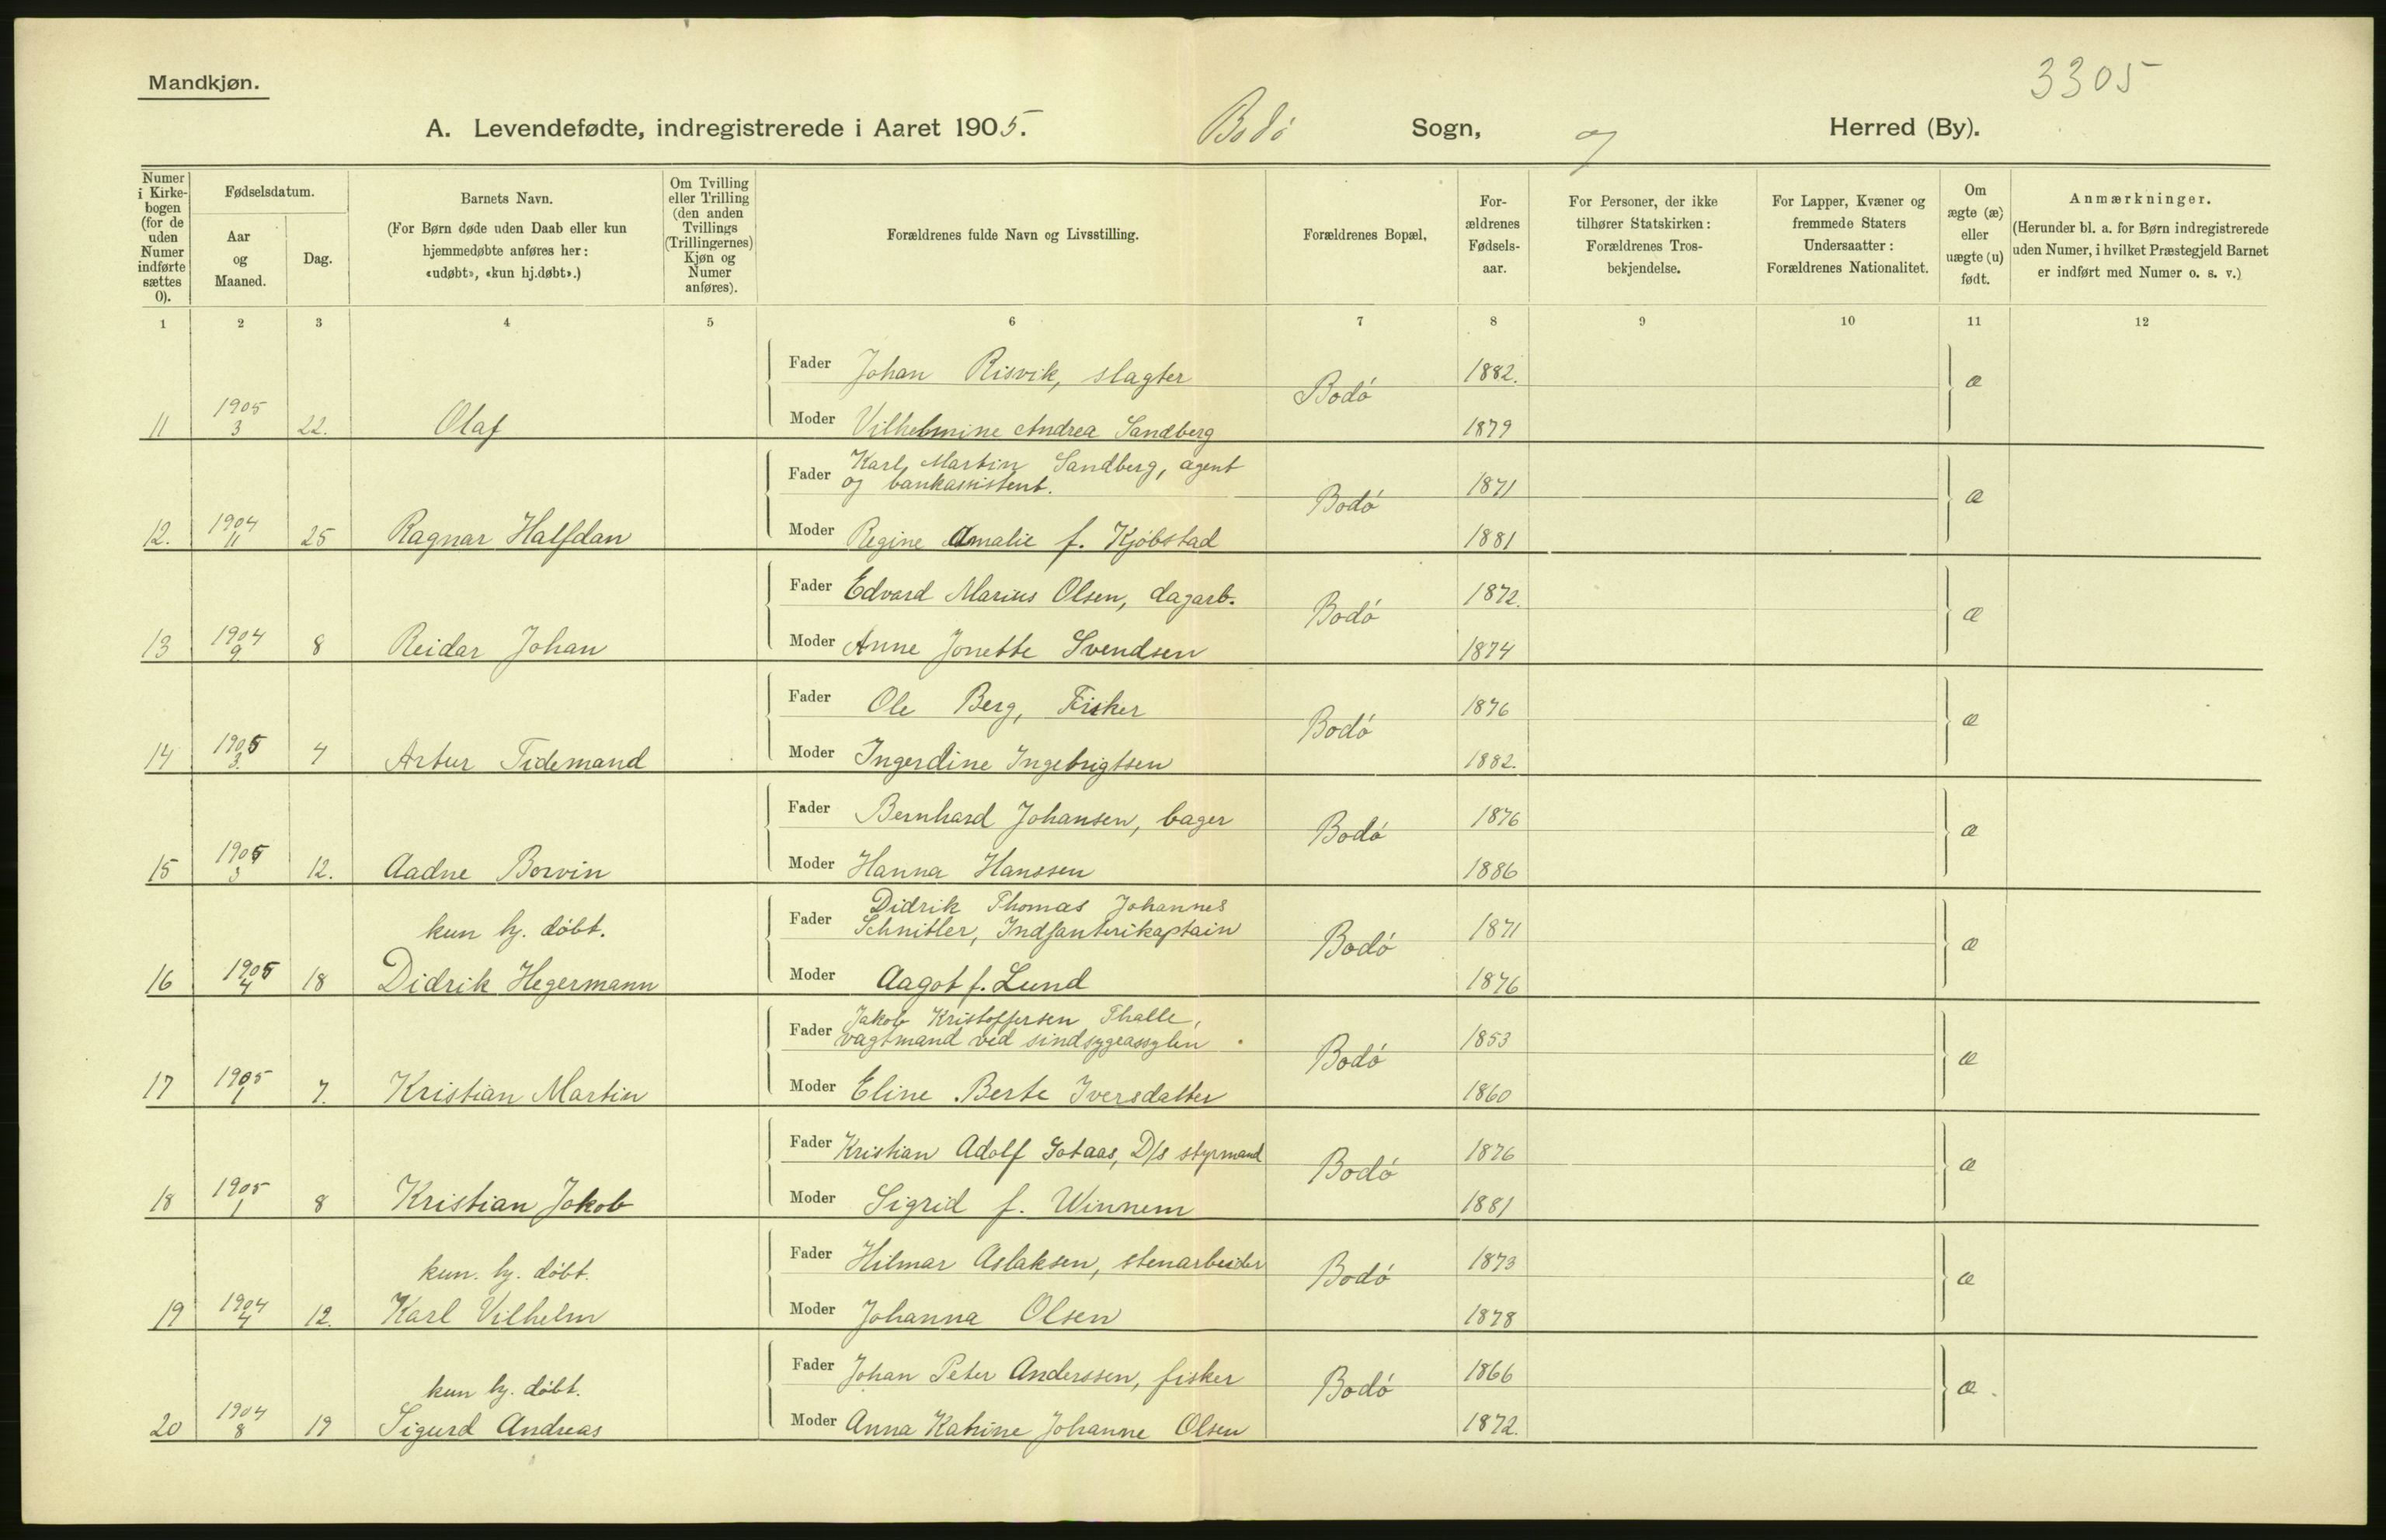 Mandkjøn.
3305
A. Levendefødte, indregistrerede i Aaret 1905. Bodø Sogn, og Herred (By).
Numer i Kirke-bogen (for de uden Numer indførte sættes 0).
Fødselsdatum.
Aar og Maaned.
Dag.
Barnets Navn.
(For Børn døde uden Daab eller kun hjemmedøbte anføres her: «udøbt», «kun hj.døbt».)
Om Tvilling eller Trilling (den anden Tvillings (Trillingernes) Kjøn og Numer anføres).
Forældrenes fulde Navn og Livsstilling.
Forældrenes Bopæl,
For-ældrenes Fødsels-aar.
For Personer, der ikke tilhører Statskirken: Forældrenes Tros-bekjendelse.
For Lapper, Kvæner og fremmede Staters Undersaatter: Forældrenes Nationalitet.
Om ægte (æ) eller uægte (u) født.
Anmærkninger.
(Herunder bl. a. for Børn indregistrerede uden Numer, i hvilket Præstegjeld Barnet er indført med Numer o. s. v.)
1 2 3 4 5 6 7 8 9 10 11 12
Fader Johan Risvik, slagter Bodø 1882. æ
11 1905 3 22. Olaf Moder Vilhelmine Andrea Sandberg 1879
Fader Karl Martin Sandberg, agent
og bankassistent. Bodø 1871 æ
12. 1904 11 25 Ragnar Halfdan Moder Regine Amalie f. Kjøbstad 1881
Fader Edvard Marius Olsen, dagarb. Bodø 1872. æ
13 1904 9 8 Reidar Johan Moder Anne Jonette Svendsen 1874
Fader Ole Berg, Fisker Bodø 1876 æ
14 1905 3. 4 Artur Tidemand Moder Ingerdine Ingebrigtsen 1882.
Fader Bernhard Johansen, bager Bodø 1876 æ
15 1905 3 12. Aadne Borvin Moder Hanna Hanssen 1886
Fader Didrik Thomas Johannes
kun hj. døbt. Schnitler, Indfanterikaptain Bodø 1871 æ
16 1905 4 18 Didrik Hegermann Moder Aagot f. Lund 1876
Fader Jakob Kristoffersen Thalle,
vagtmand ved sindsygeassylen Bodø 1853 æ
17 1905 1 7. Kristian Martin Moder Eline Berte Iversdatter 1860
Fader Kristian Adolf Gotaas, D/s styrmand Bodø 1876 æ
18 1905 1 8 Kristian Jakob Moder Sigrid f. Winnem 1881
kun. hj. døbt. Fader Hilmar Aslaksen, stenarbeider Bodø 1873 æ
19 1904 4 12. Karl Vilhelm Moder Johanna Olsen 1878
kun hj. døbt. Fader Johan Peter Anderssen, fisker Bodø 1866 æ.
20 1904 8 19 Sigurd Andreas Moder Anna Katrine Johanne Olsen 1872.